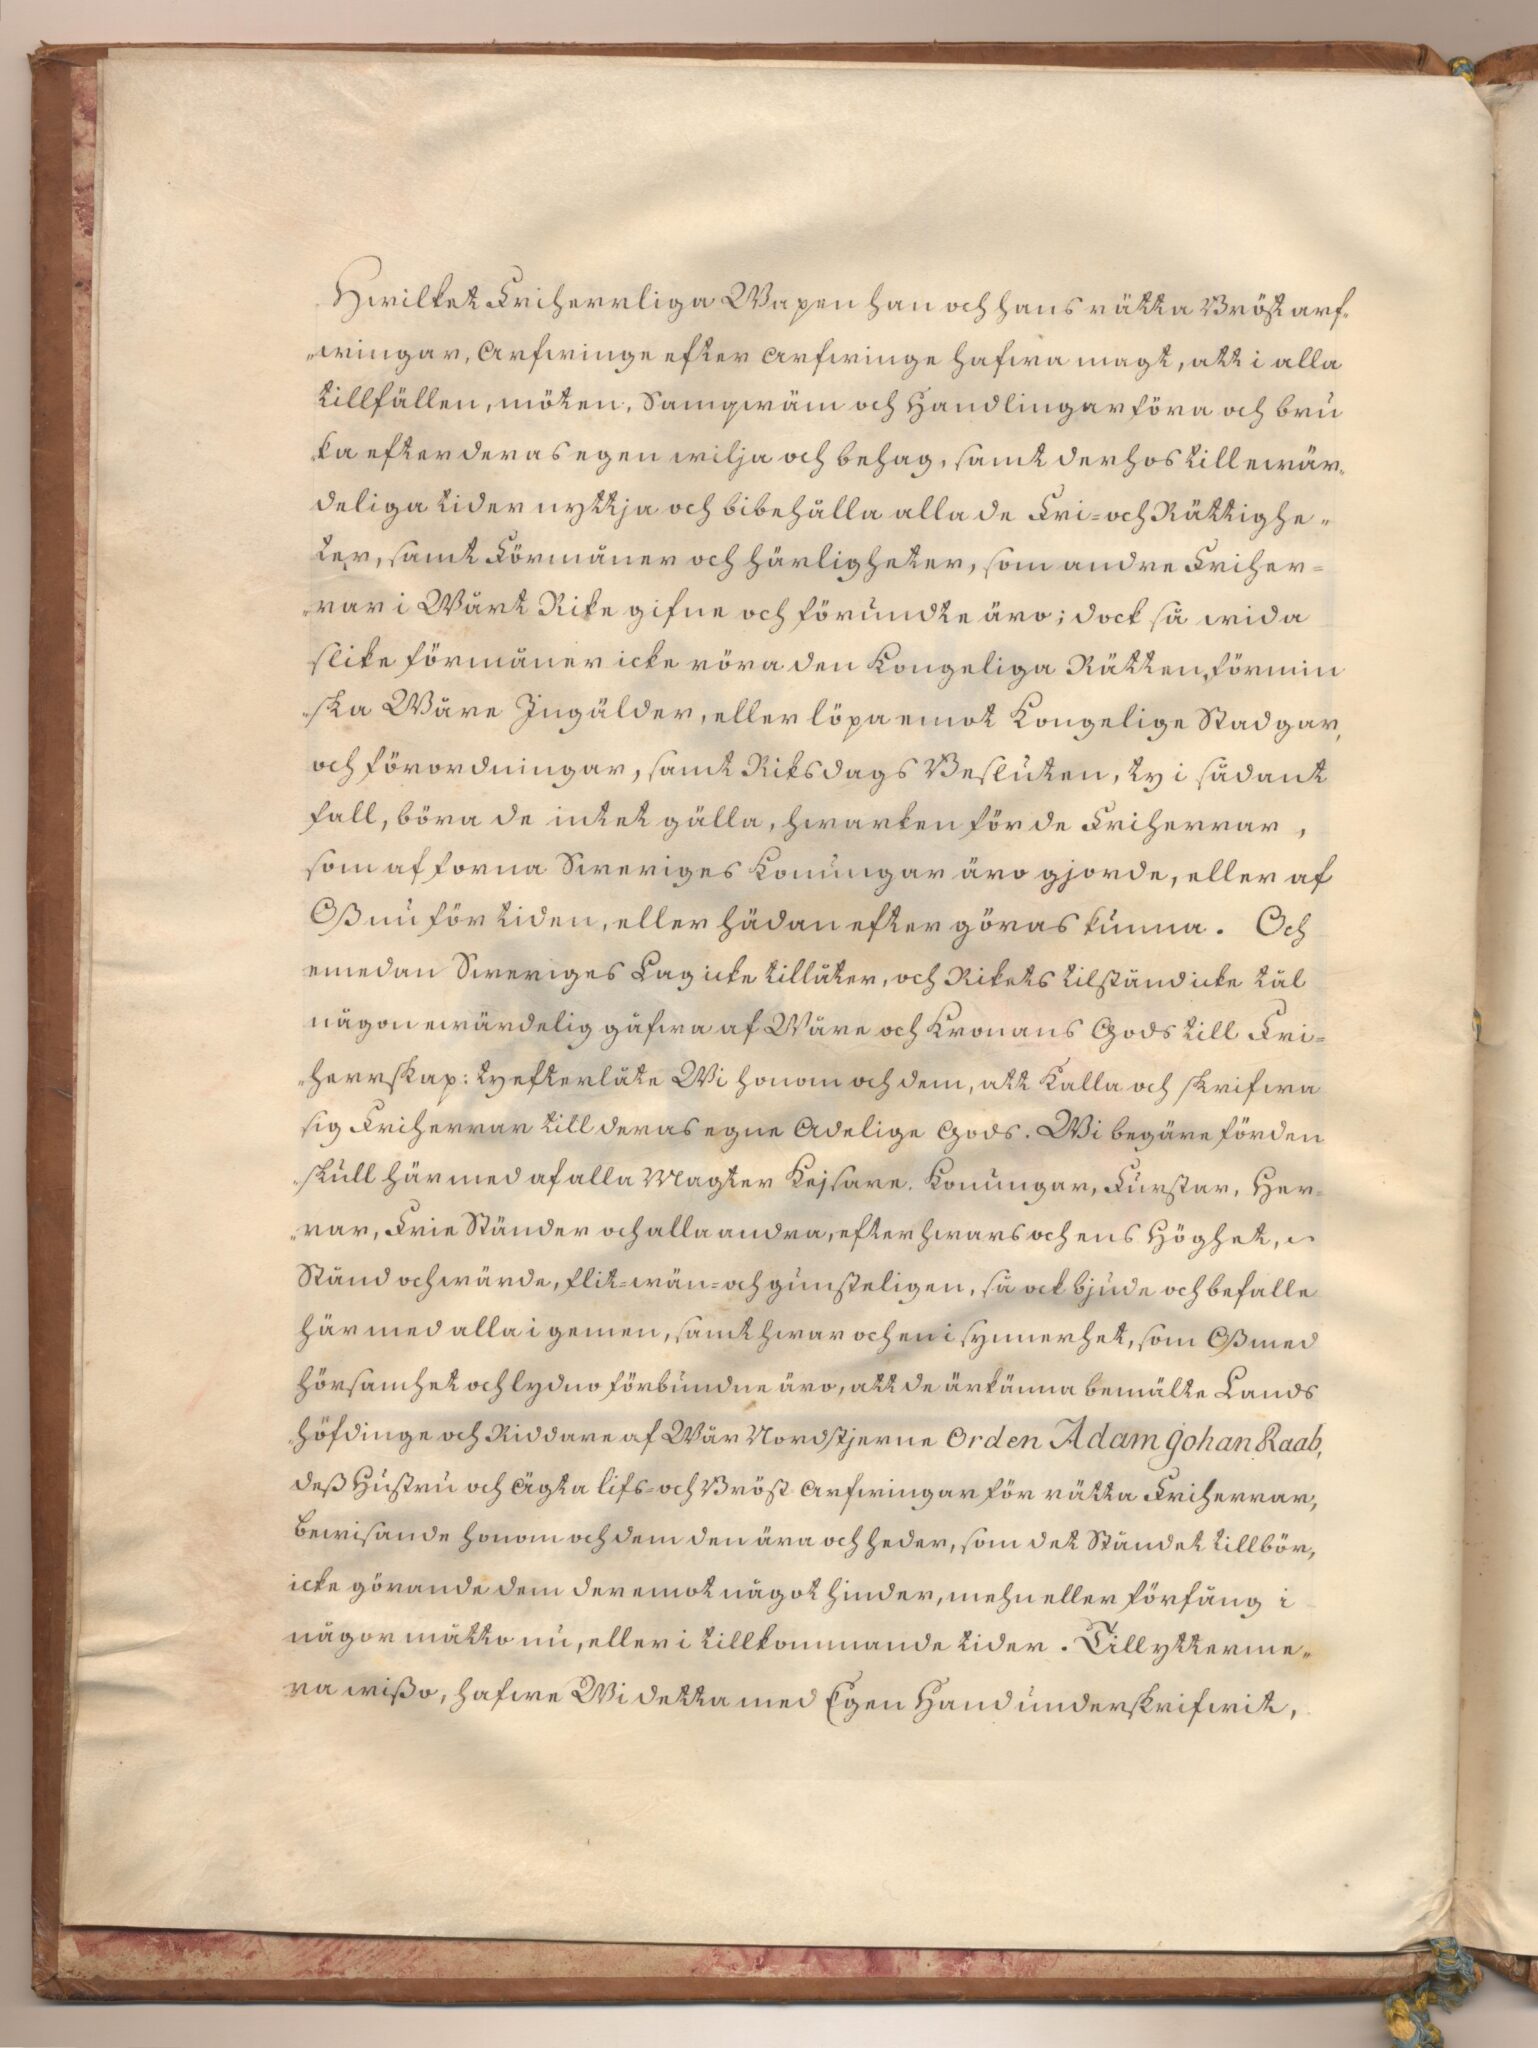 Hwilket Friherrliga Wapen han och hans rätta Bröst arf-
„wingar, Arfwinge efter Arfwinge hafwa magt, att i alla
tillfällen, möten, Samqwäm och Handlingar föra och bru
ka efter deras egen wilja och behag, samt derhos till ewär„
deliga tider nyttja och bibehålla alla de Fri= och Rättighe„
ter, samt Förmåner och härligheter, som andre Friher=
„rar i Wårt Rike gifne och förundte äro; dock så wida
slike förmåner icke röra den Kongeliga Rätten, förmin
„ska Wåre Ingälder, eller löpa emot Kongelige Stadgar,
och förordningar, samt Riksdags Besluten, ty i sådant
fall, böra de intet gälla, hwarken för de Friherrar,
som af forna Sweriges Konungar äro gjorde, eller af
Oß nu för tiden, eller hädanefter göras kunna. Och
emedan Sweriges Lag icke tillåter, och Rikets tilstånd icke tål
någon ewärdelig gåfwa af Wåre och Kronans Gods till Fri=
„herrskap: ty efterlåte Wi honom och dem, att Kalla och skrifwa
sig Friherrar till deras egne Adelige Gods. Wi begäre förden
„skull härmed af alla Magter Kejsare. Konungar, Furstar, Her=
„rar, Frie Ständer och alla andra, efter hwars och ens Höghet,
Stånd och wärde, flit=wän=och gunsteligen, så ock bjude och befalle
härmed alla i gemen, samt hwar och en i synnerhet, som Oß med
hörsamhet och lydno förbundne äro, att de ärkänna bemälte Lands
„höfdinge och Riddare af Wår Nordstjerne Orden Adam Johan Raab,
deß Hustru och Ägta lifs=och Bröst Arfwingar för rätta Friherrar,
bewisande honom och dem den ära och heder, som det Ståndet tillbör,
icke görande dem deremot något hinder, mehn eller förfång i
någor måtto nu, eller i tillkommande tider. Till ytterme„
ra wißo, hafwe Wi detta med Egen Hand underskrifwit,